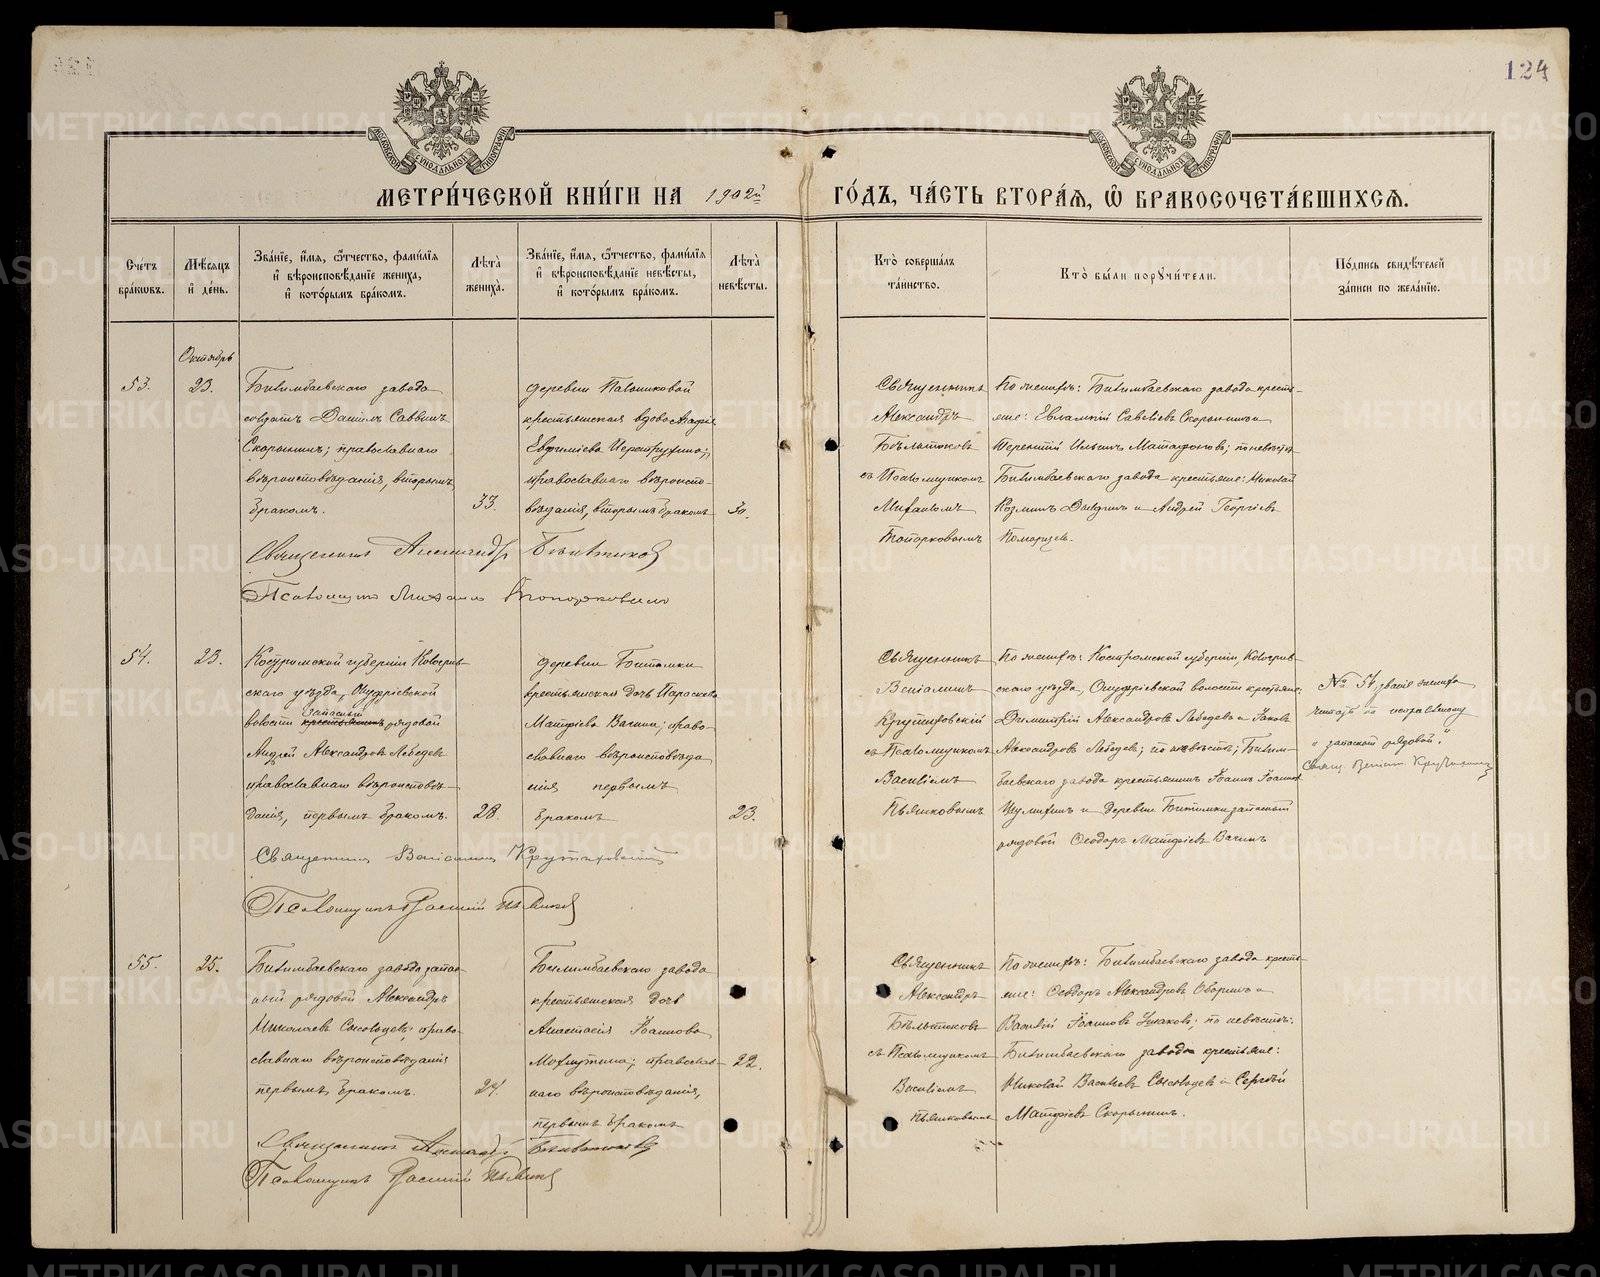 124
МОСКОВСКОЙ СѴНОДАЛЬНОЙ ТИПОГРАФІИ
МОСКОВСКОЙ СѴНОДАЛЬНОЙ ТИПОГРАФІИ
МЕТРИ́ЧЕСКОЙ КНИ́ГИ НА 1902й ГО́ДЪ, ЧА́СТЬ ВТОРА́Я, Ѡ҆ БРАКОСОЧЕТА́ВШИХСЯ.
Сче́тъ бра́кѡвъ.
Мѣ́сяцъ и҆ де́нь.
Зва́нїе, и҆́мя, ѻ҆́тчество, фами́лїя и҆ вѣроисповѣ́данїе жениха̀, и҆ кото́рымъ бра́комъ.
Лѣ́та жениха̀.
Зва́нїе, и҆́мя, ѻ҆́тчество, фами́лїя и҆ вѣроисповѣ́данїе невѣ́сты, и҆ кото́рымъ бра́комъ.
Лѣ́та невѣ́сты.
Кто̀ соверша́лъ та́инство.
Кто̀ бы́ли порꙋчи́тели.
По́дпись свидѣ́телей за́писи по жела́нїю.
Октябрь
53.
23.
Билимбаевскаго завода
солдатъ Данiилъ Саввинъ
Скорынинъ; православнаго
вѣроисповѣданія, вторымъ
бракомъ.
33.
деревни
крестьянская вдова Агафія
Евфиміева
православнаго вѣроиспо-
вѣданія, вторымъ бракомъ
Священникъ
Александръ
Бѣльтюковъ
съ Псаломщикомъ
Михаиломъ
Топорковымъ
По женихѣ: Билимбаевскаго завода кресть-
яне: Евлампій Савельевъ Скорынинъ и
Терентій Ильинъ; по невѣстѣ
Билимбаевскаго завода крестьяне: Николай
Козминъ и Андрей Георгіевъ
Священникъ Александръ Бѣльтюковъ
Псаломщикъ Михаилъ Топорковъ
54.
23.
Костромской губерніи Кологрив-
скаго уѣзда, Онуфріевской
волости запасный
крестьянинъ рядовой
Андрей Александровъ Лебедевъ
православнаго вѣроисповѣ-
данія, первымъ бракомъ.
28.
деревни Битимки
крестьянская дочь Параскева
Матфіева Вагина; право-
славнаго вѣроисповѣда
нія первымъ
бракомъ
23.
Священникъ
Веніаминъ
Крутиховскій
съ Псаломщикомъ
Василіемъ
Пьянковымъ
По женихѣ: Костромской губерніи, Кологрив-
скаго уѣзда, Онуфріевской волости крестьяне:
Димитрій Александровъ Лебедевъ и Іаковъ
Александровъ Лебедевъ; по невѣстѣ; Билим-
баевскаго завода крестьянинъ Іоаннъ Іоанновъ
и деревни Битимки запасный
рядовой Ѳеодоръ Матфіевъ Вагинъ
№ 54 званіе жениха
читать по исправленному
„запасной рядовой".
Свящ. Веніам. Крутиховскій
Священникъ Веніаминъ Крутиховскій
Псаломщикъ Василій Пьянковъ
55.
25.
Билимбаевскаго завода запас-
ный рядовой Александръ
Николаевъ Сысолѣтовъ; право-
славнаго вѣроисповѣданія
первымъ бракомъ.
24.
Билимбаевскаго завода
крестьянская дочь
Анастасія Іоаннова
православ-
наго вѣроисповѣданія,
первымъ бракомъ
22.
Священникъ
Александръ
Бѣльтюковъ
съ Псаломщикомъ
Василіемъ
Пьянковымъ
По женихѣ: Билимбаевскаго завода кресть-
яне: Ѳеодоръ Александровъ и
Василій Іоанновъ Ушаковъ; по невѣстѣ:
Билимбаевскаго завода крестьяне:
Николай Васильевъ и Сергѣй
Матфіевъ Скорынинъ.
Священникъ Александръ Бѣльтюковъ
Псаломщикъ Василій Пьянковъ
METRIKI.GASO-URAL.RU